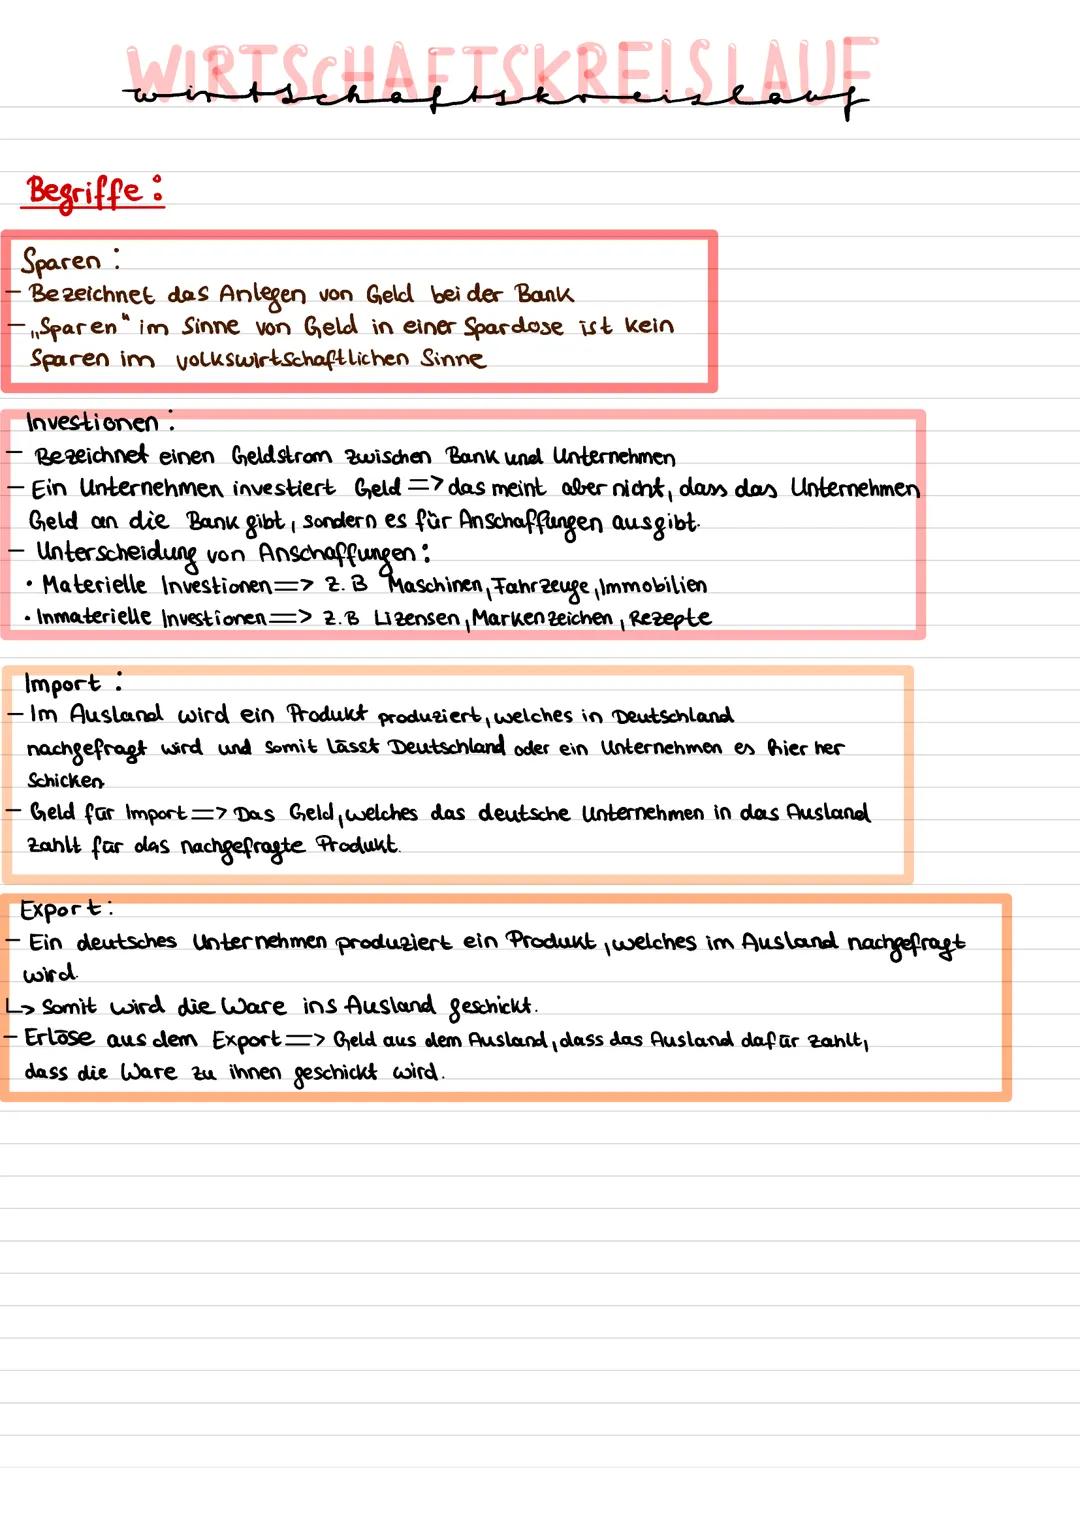 WIRTSCHAFTSKREISLAUF
wirtschaftskreislauf
Begriffe:
Sparen:
- Bezeichnet das Anlegen von Geld bei der Bank
- „Sparen“ im Sinne von Geld in einer Spardose ist kein
Sparen im volkswirtschaftlichen Sinne
Investionen:
- Bezeichnet einen Geldstrom zwischen Bank und Unternehmen
- Ein Unternehmen investiert Geld => das meint aber nicht, dass das Unternehmen
Geld an die Bank gibt, sondern es für Anschaffungen ausgibt.
- Unterscheidung von Anschaffungen:
• Materielle Investionen => z.B Maschinen, Fahrzeuge, Immobilien
• Inmaterielle Investionen => z.B Lizensen, Markenzeichen, Rezepte
Import:
- Im Ausland wird ein Produkt produziert, welches in Deutschland
nachgefragt wird und somit lässt Deutschland oder ein Unternehmen es hier her
schicken
- Geld für Import => Das Geld, welches das deutsche Unternehmen in das Ausland
zahlt für das nachgefragte Produkt.
Export:
- Ein deutsches Unternehmen produziert ein Produkt, welches im Ausland nachgefragt
wird.
↳ Somit wird die Ware ins Ausland geschickt.
- Erlöse aus dem Export => Geld aus dem Ausland, dass das Ausland dafür zahlt,
dass die Ware zu ihnen geschickt wird.